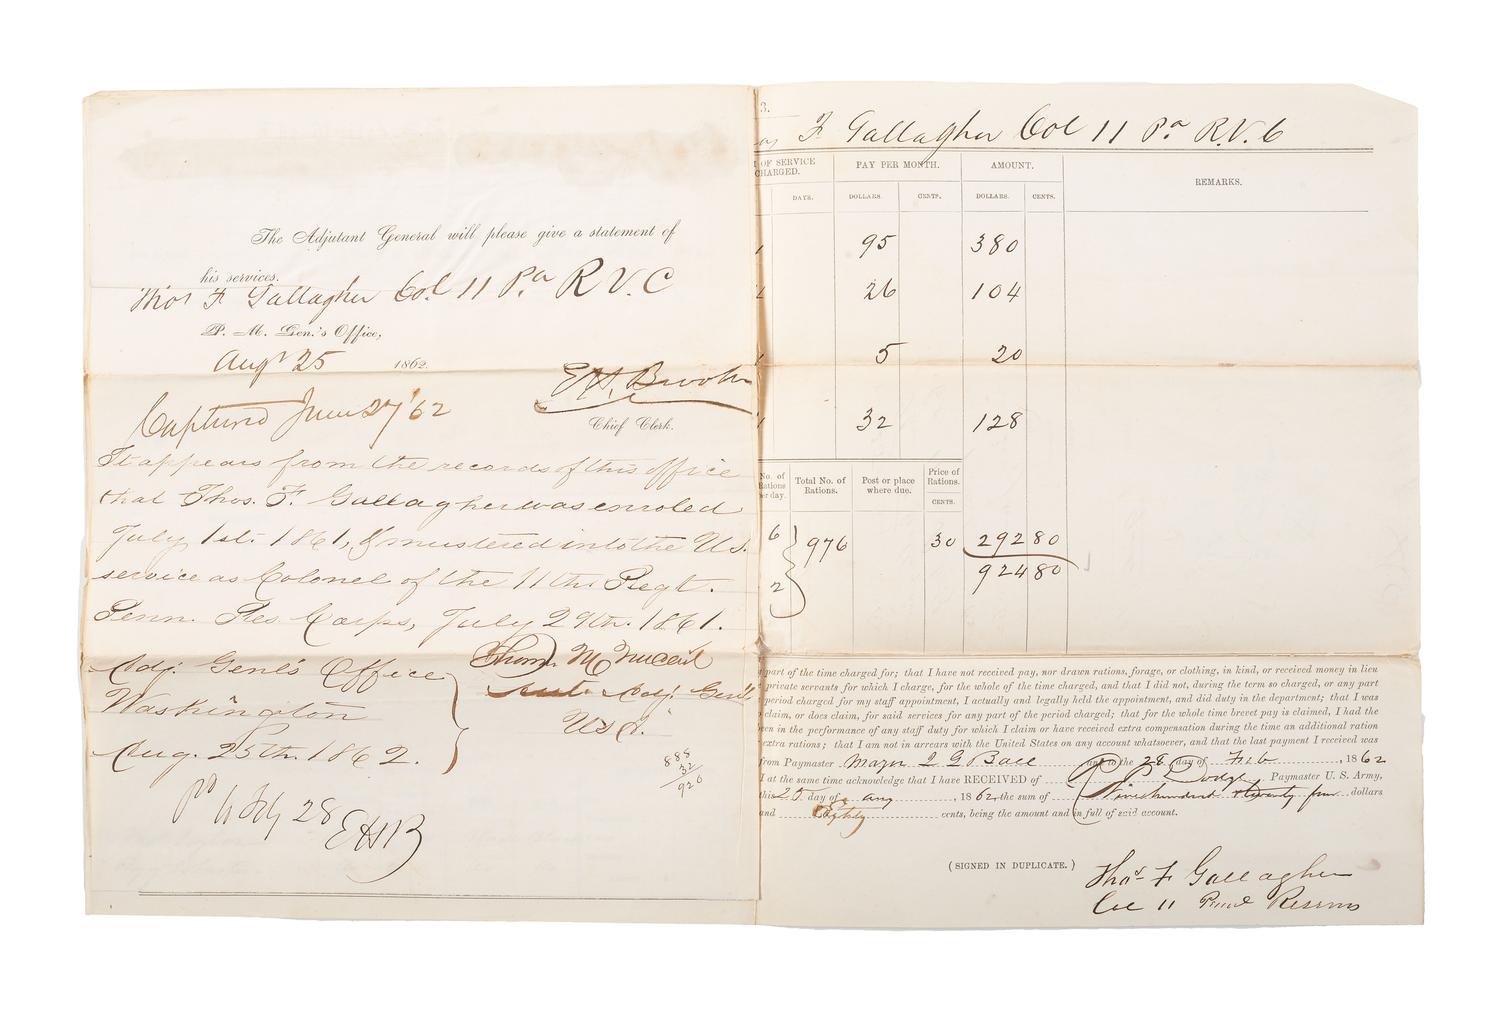 The Adjutant General will please give a statement of
his services.
Thos F Gallagher Col 11 Pa R V. C
P. M. Gen.'s Office,
Augt 25 1862.
E H. Brooke
Chief Clerk.
Captured June 27 '62
It appears from the records of this office
that Thos. F. Gallagher was enroled
July 1st. 1861, & mustered into the U.S.
service as Colonel of the 11th Regt.
Penn. Res Corps, July 29th. 1861.
Adj. Genl's Office
Washington
Aug. 25th. 1862.
Thom
Asst. Adj. Genl.
USA.
888
32
920
Pd to Feby 28 EHB
3.
F Gallagher Col 11 Pa R.V.C
OF SERVICE
CHARGED.
PAY PER MONTH.
AMOUNT.
REMARKS.
DAYS.
DOLLARS.
CENTS.
DOLLARS.
CENTS.
95 380
26 104
5 20
32 128
No. of
Rations
per day.
Total No. of
Rations.
Post or place
where due.
Price of
Rations.
CENTS.
6
2
976 30 292 80
924 80
part of the time charged for; that I have not received pay, nor drawn rations, forage, or clothing, in kind, or received money in lieu
private servants for which I charge, for the whole of the time charged, and that I did not, during the term so charged, or any part
period charged for my staff appointment, I actually and legally held the appointment, and did duty in the department; that I was
claim, or does claim, for said services for any part of the period charged; that for the whole time brevet pay is claimed, I had the
been in the performance of any staff duty for which I claim or have received extra compensation during the time an additional ration
extra rations; that I am not in arrears with the United States on any account whatsoever, and that the last payment I received was
from Paymaster Major I G Ball and to the 28 day of Feb, 1862
I at the same time acknowledge that I have RECEIVED of Dodge, Paymaster U. S. Army,
this 25 day of Aug, 1862, the sum of Nine hundred & twenty four dollars
and Eighty cents, being the amount and in full of said account.
(SIGNED IN DUPLICATE.)
Thos F Gallagher
Col 11 Penna Reserves